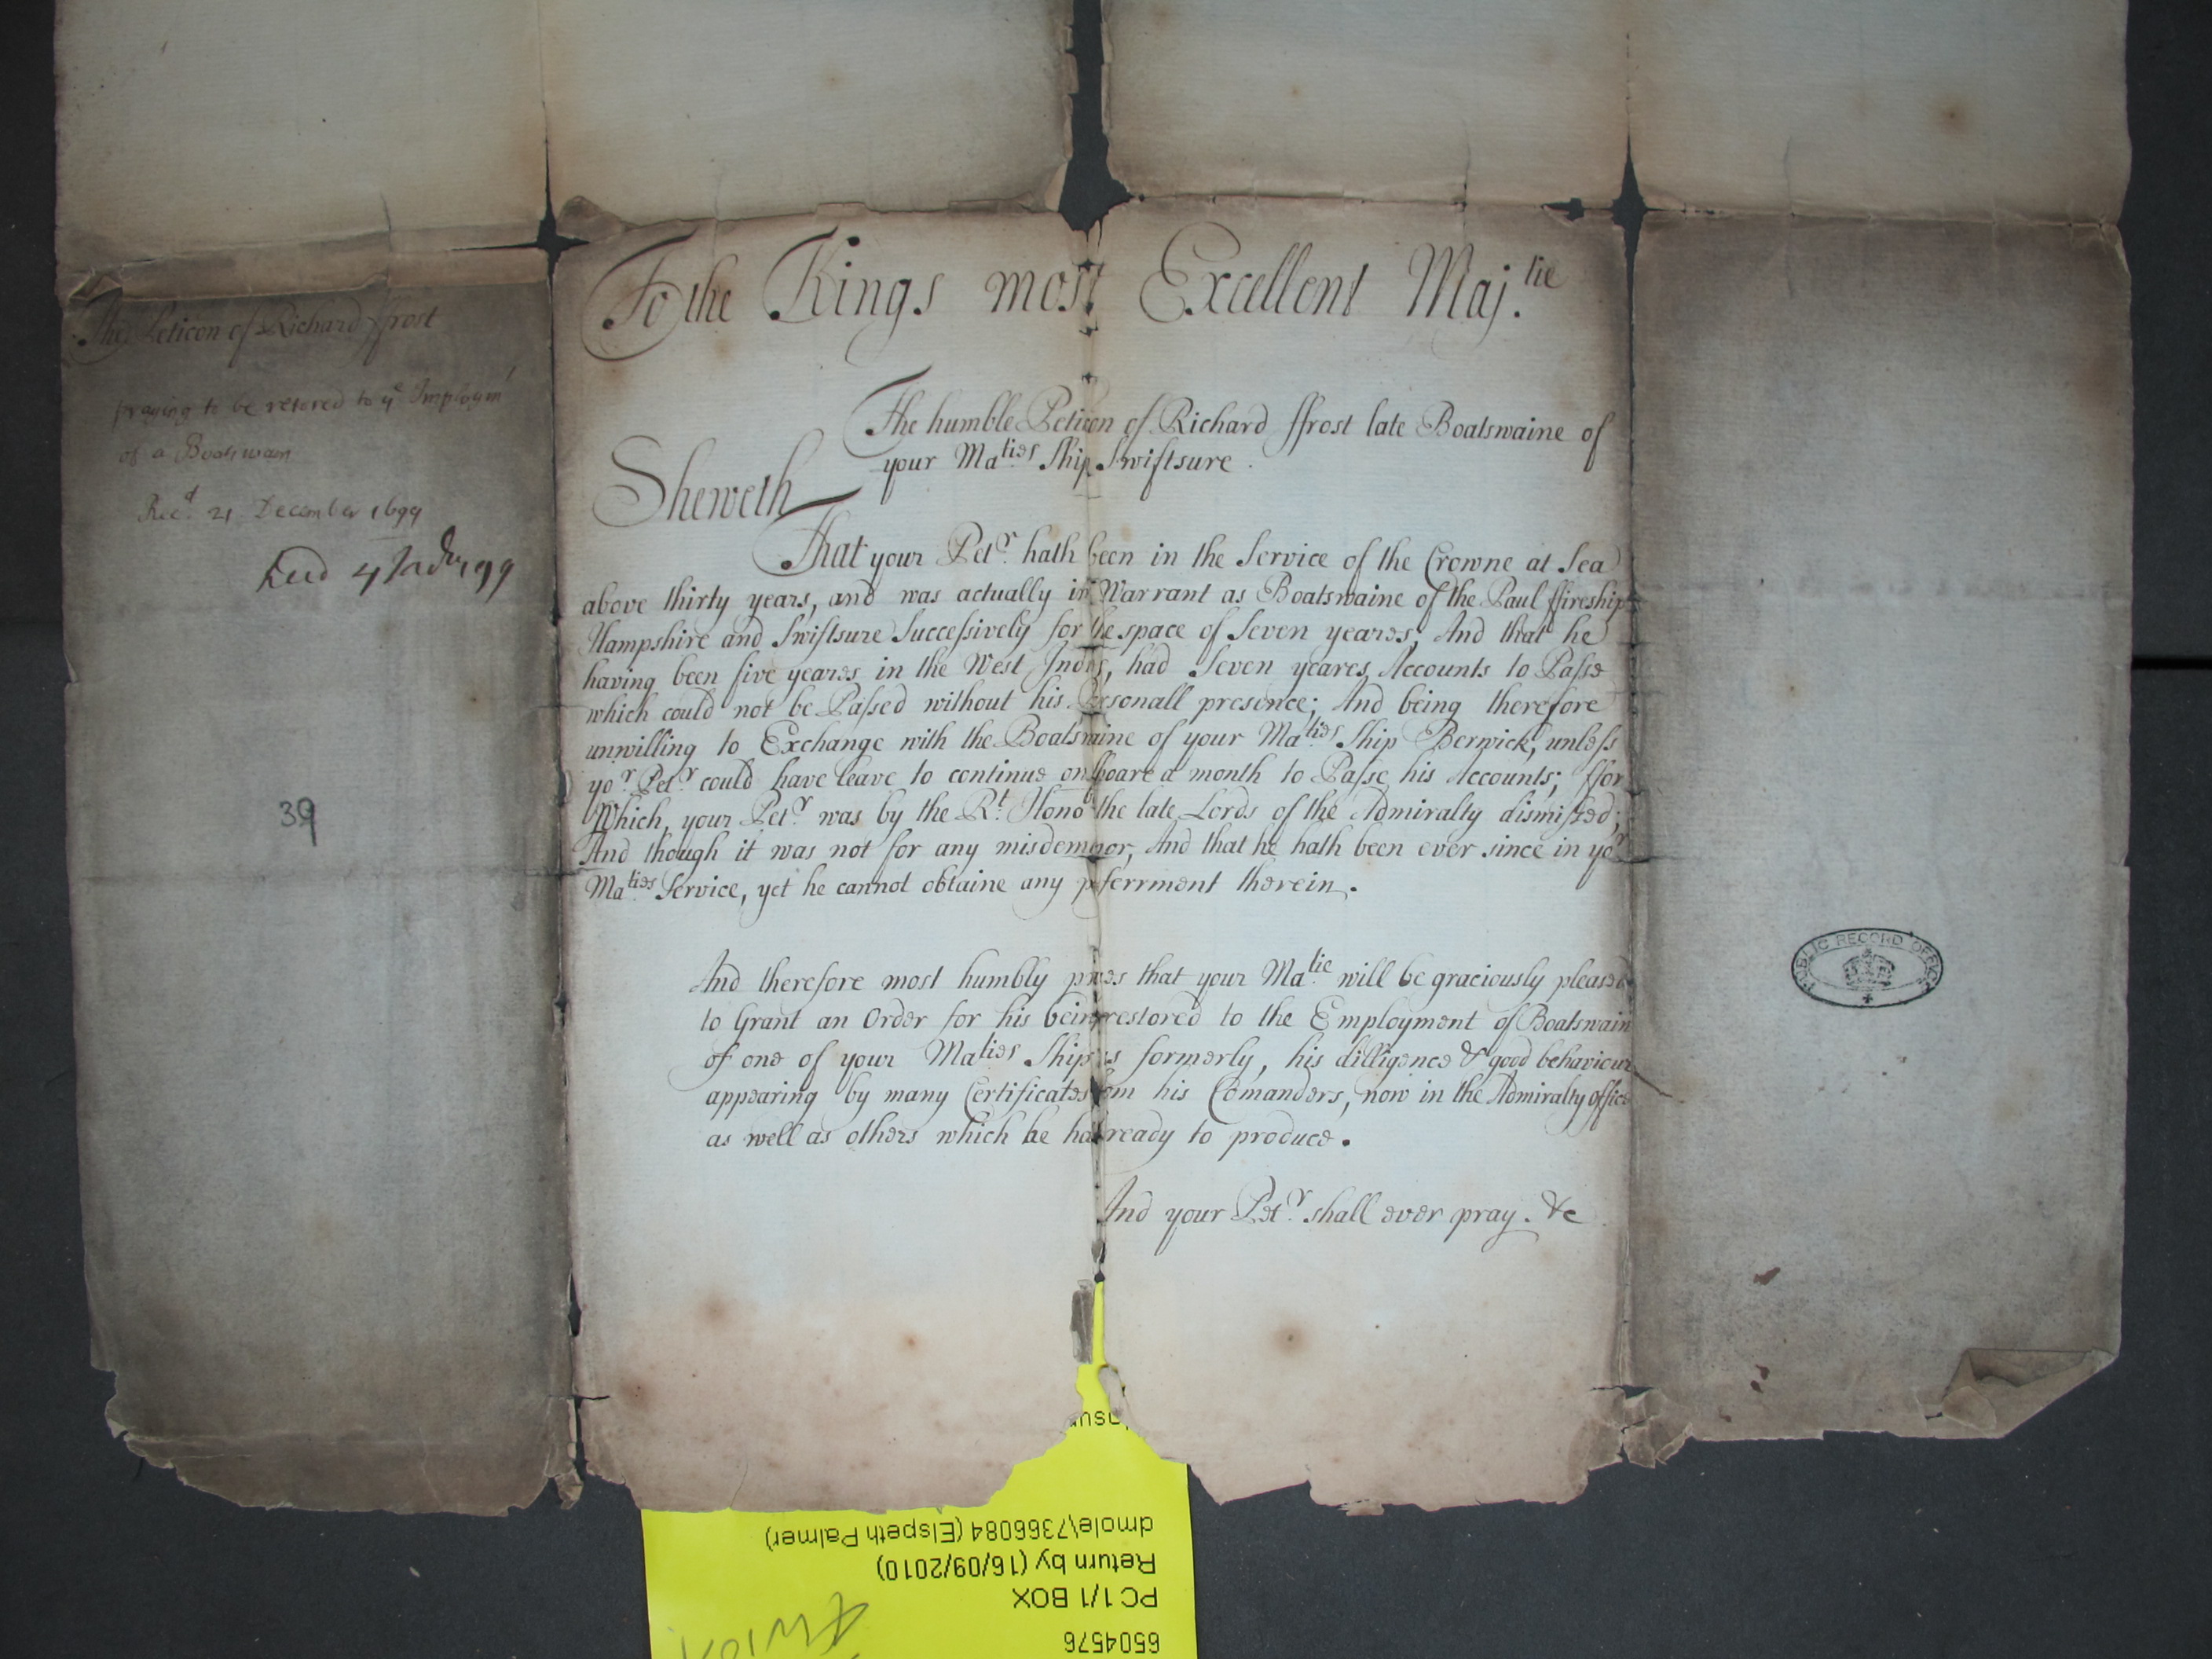 The Peticon of Richard ffrost
praying to be retored to ye Imploym
of a Boatswain
Recd. 21 December 1699
39
To the Kings most Excellent Maj.tie
The humble Peticon of Richard ffrost late Boatswaine of
your Ma.ties Ship Swiftsure.
Sheweth
That your Pet.r hath been in the Service of the Crowne at Sea
above thirty years, and was actually in Warrant as Boatswaine of the Paul ffireship
Hampshire and Swiftsure Successively for the space of Seven yeares; And that he
having been five yeares in the West Indies, had Seven yeares Accounts to Passe
which could not be Passed without his Personall presence; And being therefore
unwilling to Exchange with the Boatswaine of your Ma.ties Ship Berwick, unless
yo.r Pet.r could have leave to continue on boare a month to Passe his Accounts; ffor
Which, your Pet.r was by the R.t Hono.b the late Lords of the Admiralty dismissed;
And though it was not for any misdemenor, And that he hath been ever since in yo.r
Ma.ties Service, yet he cannot obtaine any pferrment therein.
And therefore most humbly prayes that your Ma.tie will be graciously pleased
to Grant an Order for his being restored to the Employment of Boatswain
of one of your Ma.ties Ships as formerly, his dilligence & good behaviour
appearing by many Certificates from his Comanders, now in the Admiralty office
as well as others which he hath ready to produce.
And your Pet.r shall ever pray. &c
PUBLIC RECORD OFFICE
dmole\7366084 (Elspeth Palmer)
Return by (16/09/2010)
PC 1/1 BOX
6504576